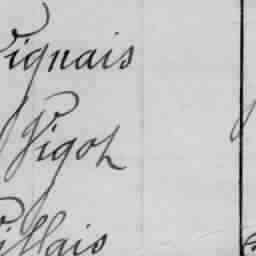 Vignais
Vigot
Villais